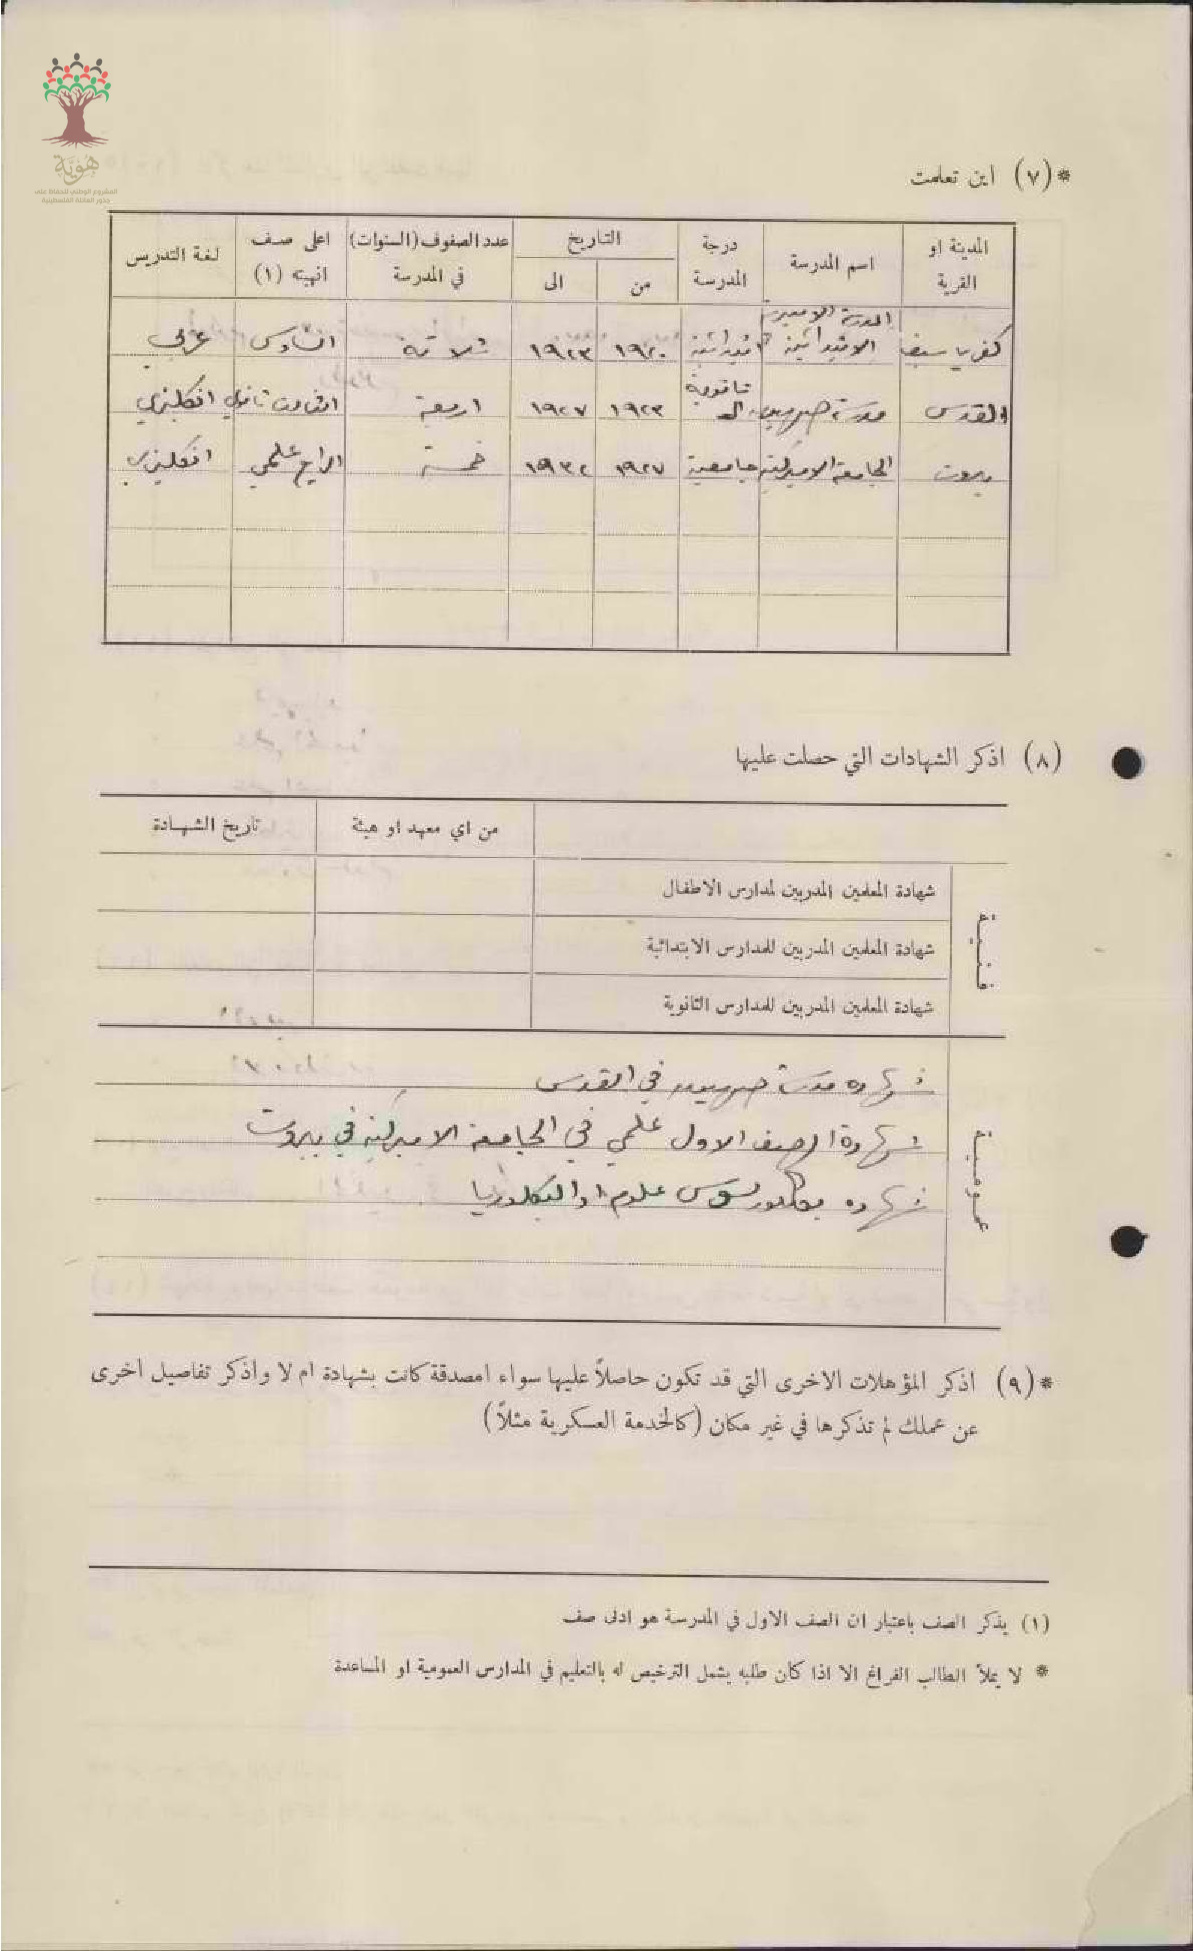 هوية
المشروع الوطني للحفاظ على
جذور العائلة الفلسطينية
*(٧) اين تعلمت
المدينة او القرية | اسم المدرسة | درجة المدرسة | التاريخ من | الى | عدد الصفوف (السنوات) في المدرسة | اعلى صف انهيته (١) | لغة التدريس
كفر ياسيف | المدرسة الاميرية الابتدائية | ابتدائية | ١٩٢٠ | ١٩٢٣ | ثلاثة | السادس | عربي
القدس | مدرسة صهيون | ثانوية | ١٩٢٣ | ١٩٢٧ | اربعة | ثانوي | انكليزي
بيروت | الجامعة الاميركية | جامعية | ١٩٢٧ | ١٩٣٢ | خمسة | الرابع علمي | انكليزي
(٨) اذكر الشهادات التي حصلت عليها
من اي معهد او هيئة | تاريخ الشهادة
فنية
شهادة المعلمين المدربين لمدارس الاطفال
شهادة المعلمين المدربين للمدارس الابتدائية
شهادة المعلمين المدربين للمدارس الثانوية
عمومية
شهاده مدرسة صهيون في القدس
شهادة الصف الاول علمي في الجامعة الاميركية في بيروت
شهاده بكلوريوس علوم او البكلوريا
*(٩) اذكر المؤهلات الاخرى التي قد تكون حاصلاً عليها سواء امصدقة كانت بشهادة ام لا واذكر تفاصيل اخرى
عن عملك لم تذكرها في غير مكان (كالخدمة العسكرية مثلاً)
(١) يذكر الصف باعتبار ان الصف الاول في المدرسة هو ادنى صف
* لا يملأ الطالب الفراغ الا اذا كان طلبه يشمل الترخيص له بالتعليم في المدارس العمومية او المساعدة